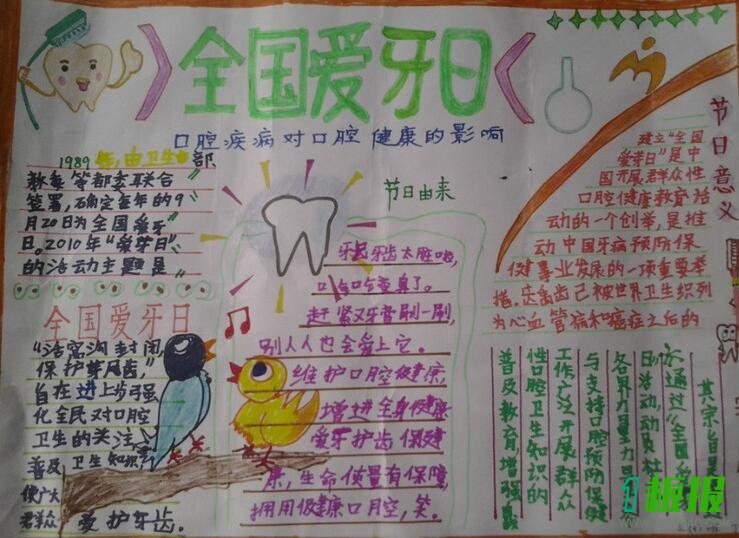 全国爱牙日
口腔疾病对口腔健康的影响
1989年,由卫生部
教委等部委联合
签署,确定每年的9
月20日为全国爱牙
日。2010年“爱芽日”
的活动主题是
全国爱牙日
“活窝沟封闭,
保护芽尾齿”
自在进上步强
化全民对口腔
卫生的关注
普及卫生知识
使广大
群众
爱护牙齿.
节日由来
牙齿太脏啦,
赶紧叉牙膏刷一刷,
别人人也会爱上它。
维护口腔健康,
增进全身健康
爱牙护齿保健
康,生命质量有保障,
拥用健康口腔,笑。
节日意义
建立“全国
爱芽日”是中
国开展群众性
口腔健康教育活
动的一个创举,是推
动中国牙病预防保
健事业发展的一项重要举
措.达禹齿己被世界卫生织列
为心血管病和癌症之后的
其宗旨是
通过“全国
日活动,动员社
各界力量
与支持口腔预防保健
工作广泛开展群众
性口腔卫生知识的
普及教育增强
板报